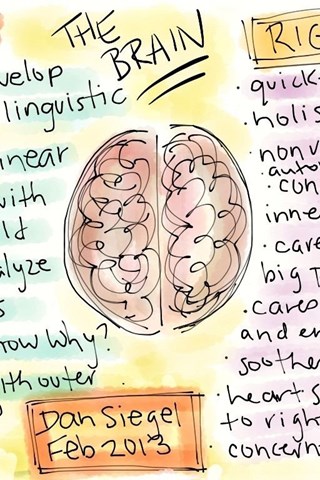 THE
BRAIN
velop
linguistic
near
with
ld
alyze
s
now Why?
ith outer
RIG
quick
holis
nonv
auto
con
inne
care
big
cares
and en
soothe
heart s
to righ
concern
Dan Siegel
Feb 2013